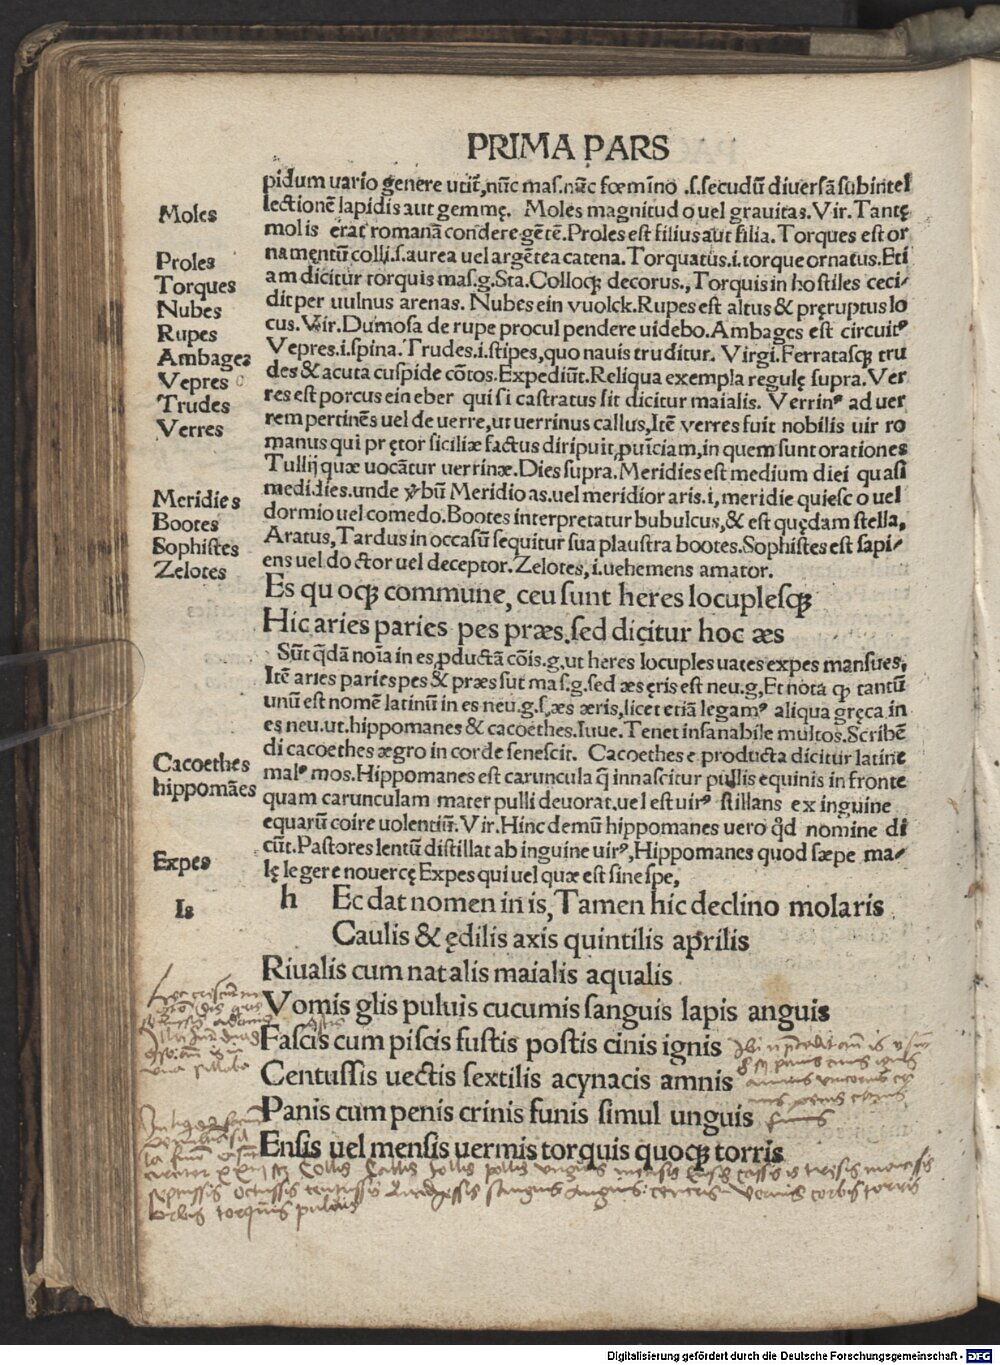 PRIMA PARS
pidum uario genere utit̃,nũc mas.nũc fœmĩno .s.secũdũ diuersã subintel
Moles
lectionẽ lapidis aut gemmę. Moles magnitudo uel grauitas. Vir. Tantę
molis erat romanã condere gẽtẽ. Proles est filius aut filia. Torques est or
Proles
namentũ colli.s.aurea uel argẽtea catena. Torquatus.i.torque ornatus. Eti
Torques
am dicitur torquis mas.g. Sta. Colloqꝫ decorus., Torquis in hostiles ceci/
Nubes
dit per uulnus arenas. Nubes ein vuolck. Rupes est altus & pręruptus lo
Rupes
cus. Vir. Dumosa de rupe procul pendere uidebo. Ambages est circuitꝰ
Ambages
Vepres.i.spina. Trudes.i.stipes, quo nauis truditur. Virgi. Ferratasqꝫ tru
Vepres
des & acuta cuspide cõtos. Expediũt. Reliqua exempla regulę supra. Ver
Trudes
res est porcus ein eber qui si castratus sit dicitur maialis. Verrinꝰ ad uer
Verres
rem pertinẽs uel de uerre, ut uerrinus callus, Itẽ verres fuit nobilis uir ro
manus qui prętor siciliæ factus diripuit ꝓuĩciam, in quem sunt orationes
Tullij quæ uocãtur uerrinæ. Dies supra. Meridies est medium diei quasi
Meridies
medidies. unde ꝟbũ Meridio as. uel meridior aris.i, meridie quiesco uel
Bootes
dormio uel comedo. Bootes interpretatur bubulcus, & est quędam stella,
Sophistes
Aratus, Tardus in occasũ sequitur sua plaustra bootes. Sophistes est sapi/
Zelotes
ens uel doctor uel deceptor. Zelotes, i. uehemens amator.
Es quoqꝫ commune, ceu sunt heres locuplesqꝫ
Hic aries paries pes præs. sed dicitur hoc æs
Sũt q̃dã noĩa in es, ꝓductã cõis.g. ut heres locuples uates expes mansues,
Itẽ aries paries pes & præs sũt mas.g. sed æs ęris est neu.g, Et nota qꝫ tantũ
unũ est nomẽ latinũ in es neu.g.s, æs æris, licet etiã legamꝰ aliqua gręca in
es neu. ut. hippomanes & cacoethes. Iuue. Tenet insanabile multos. Scribẽ
Cacoethes
di cacoethes ægro in corde senescit. Cacoethes e producta dicitur latine
hippomães
malꝰ mos. Hippomanes est caruncula q̃ innascitur pullis equinis in fronte
quam carunculam mater pulli deuorat. uel est uirꝰ stillans ex inguine
equarũ coire uolentiũ. Vir. Hinc demũ hippomanes uero qd̃ nomine di
cũt. Pastores lentũ distillat ab inguine uirꝰ, Hippomanes quod sæpe ma/
Expes
lę legere nouercę Expes qui uel quæ est sine spe,
Is
h Ec dat nomen in is, Tamen hic declino molaris
Caulis & ędilis axis quintilis aprilis
Riualis cum natalis maialis aqualis
Vomis glis puluis cucumis sanguis lapis anguis
Fascis cum piscis fustis postis cinis ignis
Centussis uectis sextilis acynacis amnis
Panis cum penis crinis funis simul unguis
funis
Ensis uel mensis uermis torquis quoqꝫ torris
Collis Callis follis pollis unguis mensis ensis
septussis octussis centussis sanguis anguis vermis corbis torris
orbis torquis puluis
Digitalisierung gefördert durch die Deutsche Forschungsgemeinschaft - DFG